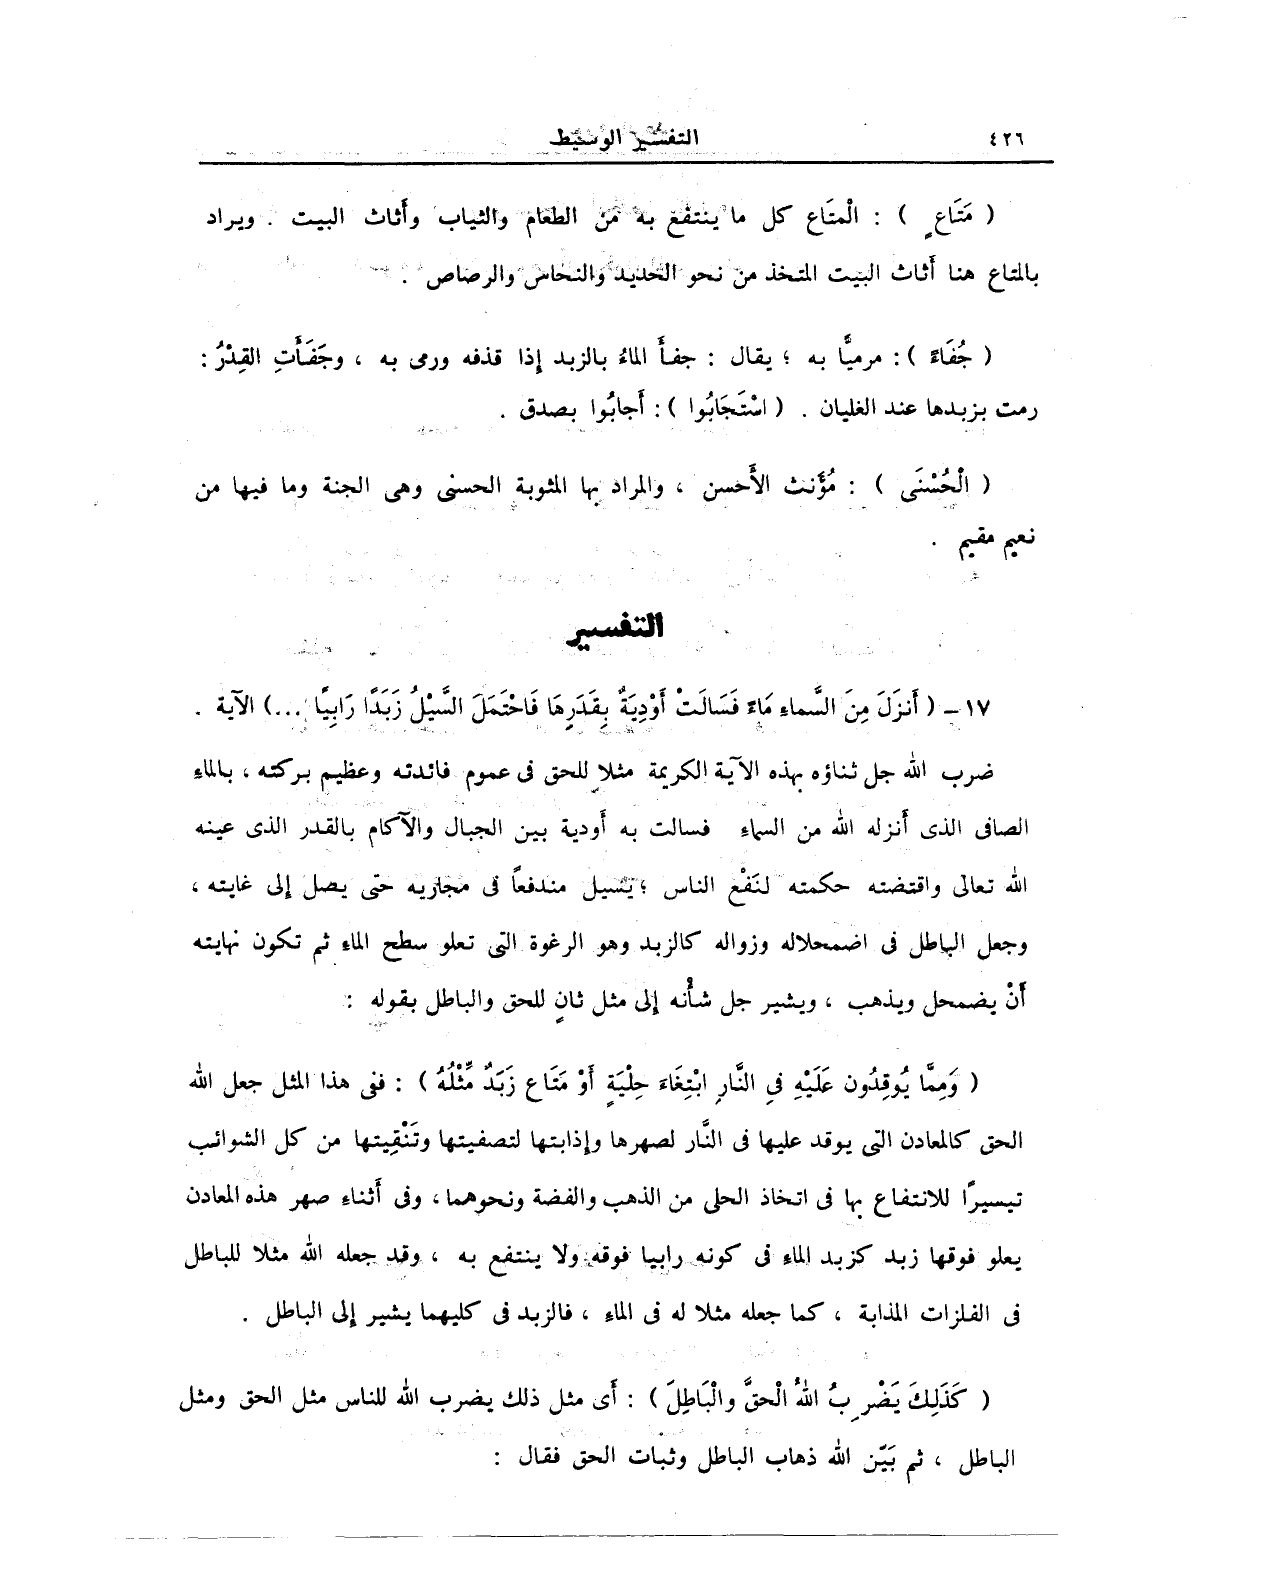 ٤٢٦
التفسير الوسيط
( مَتَاعٍ ) : الْمتَاع كل ما ينتفع به من الطعام والثياب وأَثاث البيت . ويراد
بالمتاع هنا أَثاث البيت المتخذ من نحو الحديد والنحاس والرصاص .
( جُفَاءً ): مرميًّا به ؛ يقال : جفأَ الماءُ بالزبد إذا قذفه ورمى به ، وجَفَأَتِ القِدْرُ :
رمت بزبدها عند الغليان . ( اسْتَجَابُوا ): أَجابُوا بصدق .
( الْحُسْنَى ) : مُؤَنث الأَحسن ، والمراد بها المثوبة الحسنى وهى الجنة وما فيها من
نعيم مقيم .
التفسير
١٧ - ( أَنزَلَ مِنَ السَّماءِ مَاءً فَسَالَتْ أَوْدِيَةٌ بِقَدَرِهَا فَاحْتَمَلَ السَّيْلُ زَبَدًا رَابِيًا ...) الآية .
ضرب الله جل ثناؤه بهذه الآية الكريمة مثلا للحق فى عموم فائدته وعظيم بركته ، بالماءِ
الصافى الذى أَنزله الله من السماءِ فسالت به أَودية بين الجبال والآكام بالقدر الذى عينه
الله تعالى واقتضته حكمته لنَفْع الناس ؛ يَسيل مندفعاً فى مجاريه حتى يصل إلى غايته ،
وجعل الباطل فى اضمحلاله وزواله كالزبد وهو الرغوة التى تعلو سطح الماءِ ثم تكون نهايته
أَنْ يضمحل ويذهب ، ويشير جل شأْنه إلى مثل ثانٍ للحق والباطل بقوله :
( وَمِمَّا يُوقِدُون عَلَيْهِ فِى النَّارِ ابْتِغَاءَ حِلْيَةٍ أَوْ مَتَاعٍ زَبَدٌ مِّثْلُهُ ) : ففى هذا المثل جعل الله
الحق كالمعادن التى يوقد عليها فى النَّار لصهرها وإذابتها لتصفيتها وتَنْقِيتها من كل الشوائب
تيسيرًا للانتفاع بها فى اتخاذ الحلى من الذهب والفضة ونحوهما ، وفى أَثناءِ صهر هذه المعادن
يعلو فوقها زبد كزبد الماءِ فى كونه رابيا فوقه ولا ينتفع به ، وقد جعله الله مثلا للباطل
فى الفلزات المذابة ، كما جعله مثلا له فى الماءِ ، فالزبد فى كليهما يشير إلى الباطل .
( كَذَلِكَ يَضْرِبُ اللهُ الْحقَّ والْبَاطِلَ ) : أَى مثل ذلك يضرب الله للناس مثل الحق ومثل
الباطل ، ثم بَيّن الله ذهاب الباطل وثبات الحق فقال :